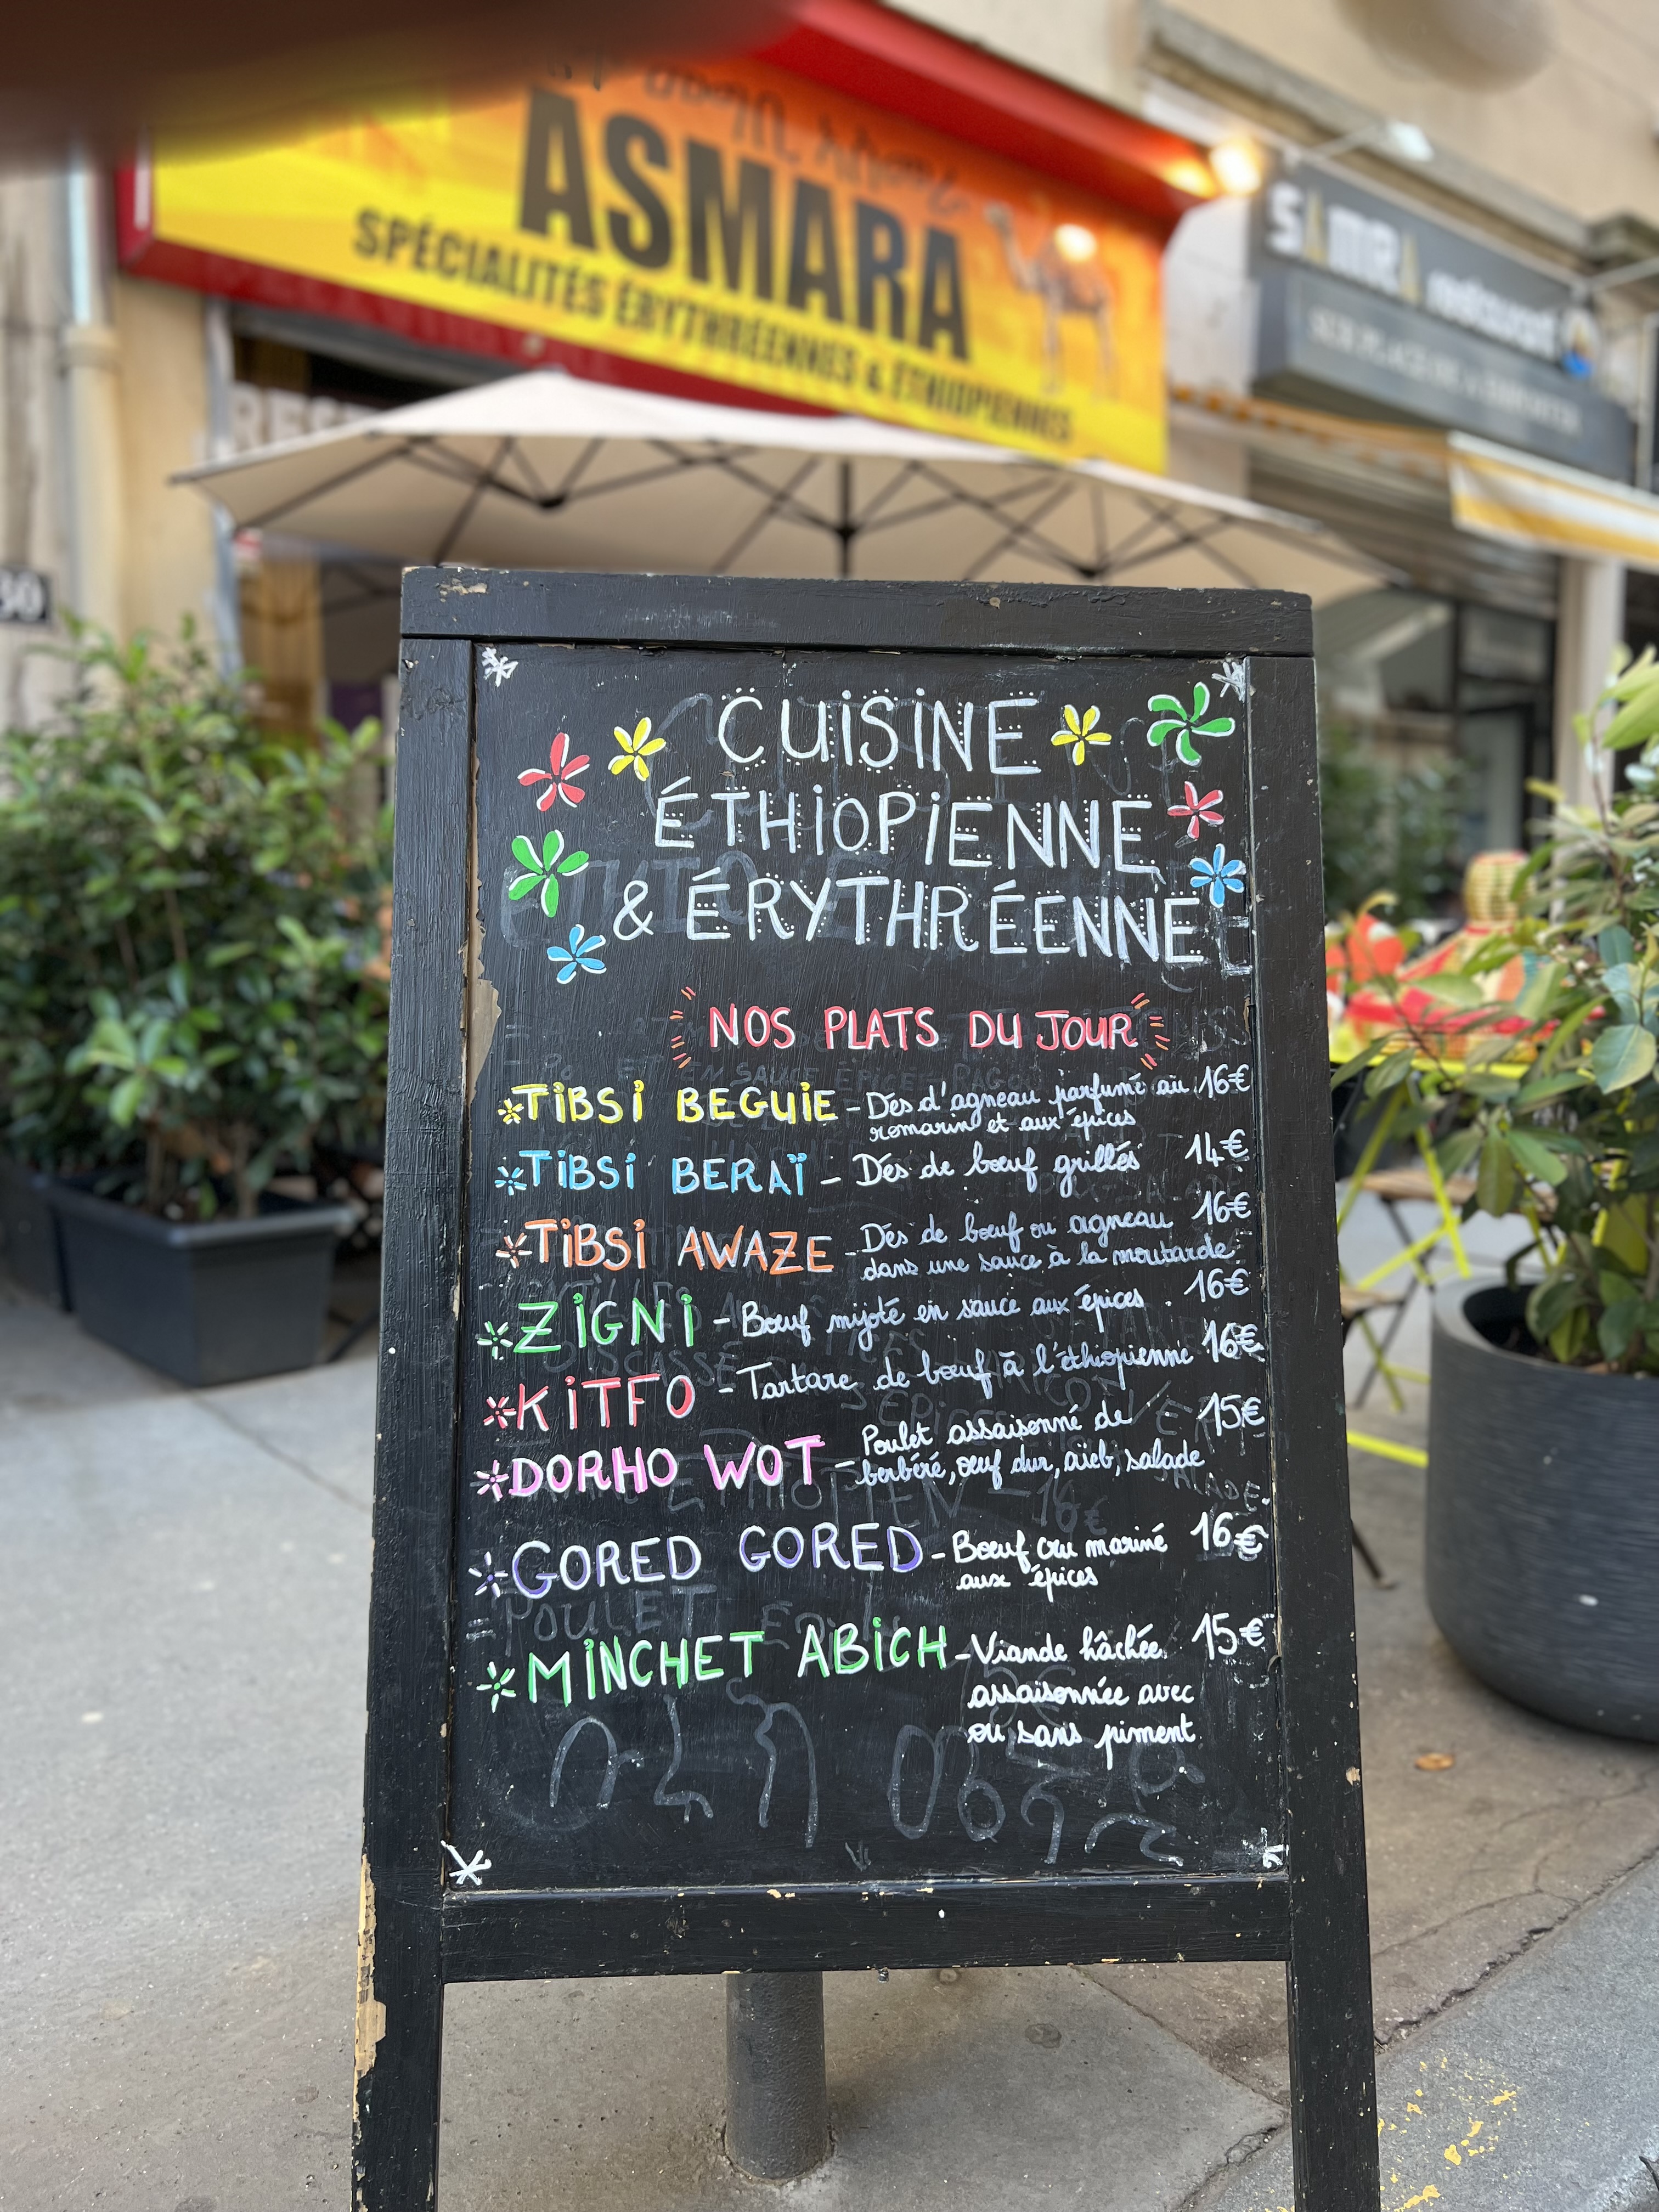 ASMARA
SPÉCIALITÉS ÉRYTHRÉENNES & ÉTHIOPIENNES
SAMRA restaurant
30
CUISINE
ÉTHIOPIENNE
& ÉRYTHRÉENNE
NOS PLATS DU JOUR
TIBSI BEGUIE - Dés d'agneau parfumé au 16€
romarin et aux épices
TIBSI BERAÏ - Dés de bœuf grillés 14€
TIBSI AWAZE - Dés de bœuf ou agneau 16€
dans une sauce à la moutarde
ZIGNI - Bœuf mijoté en sauce aux épices 16€
KITFO - Tartare de bœuf à l'éthiopienne 16€
DORHO WOT - Poulet assaisonné de 15€
berbéré, œuf dur, aïeb, salade
GORED GORED - Bœuf cru mariné 16€
aux épices
MINCHET ABICH - Viande hâchée 15€
assaisonnée avec
ou sans piment